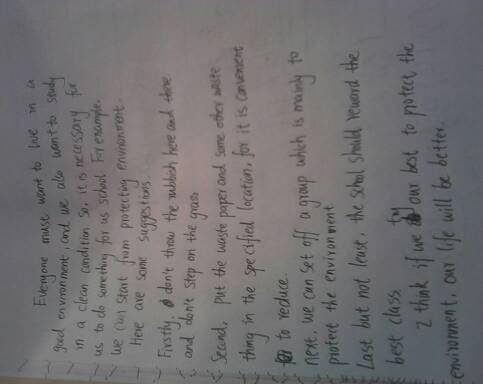 Everyone muse want to live in a
good environment, and we also want to study
in a clean condition. So, it is necessary for
us to do something for us school. For example.
We can start from protecting environment.
Here are some suggestions.
Firstly, don't throw the rubbich here and there
and don't step on the grass
Second, put the waste paper and some other waste
thing in the specified location, for it is convenient
to reduce.
next, we can set off a group which is mainly to
protect the environment
Last but not lease, the schol should reward the
best class
I think if we try our best to protect the
environment, our life will be better.